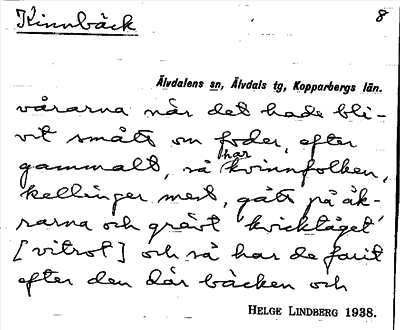 Kinnbäck
8
Älvdalens sn, Älvdals tg, Kopparbergs län.
vårarna när det hade bli-
vit smått om foder, efter
gammalt, så har kvinnfolken,
kellinger mest, gått på åk-
rarna och grävt kvicktåget
[vitrot] och så har de farit
efter den där bäcken och
HELGE LINDBERG 1938.